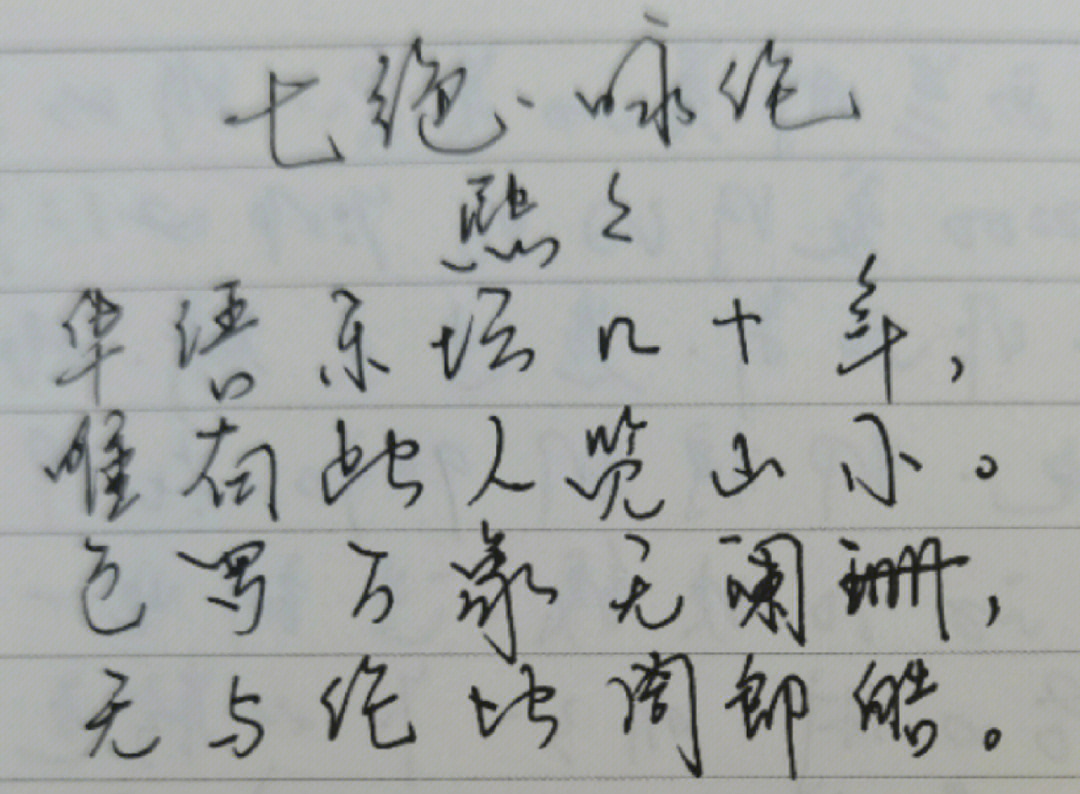 七绝·咏伦
熙之
华语乐坛几十年，
唯有此人览山小。
包罗万象无阑珊，
无与伦比周郎皓。